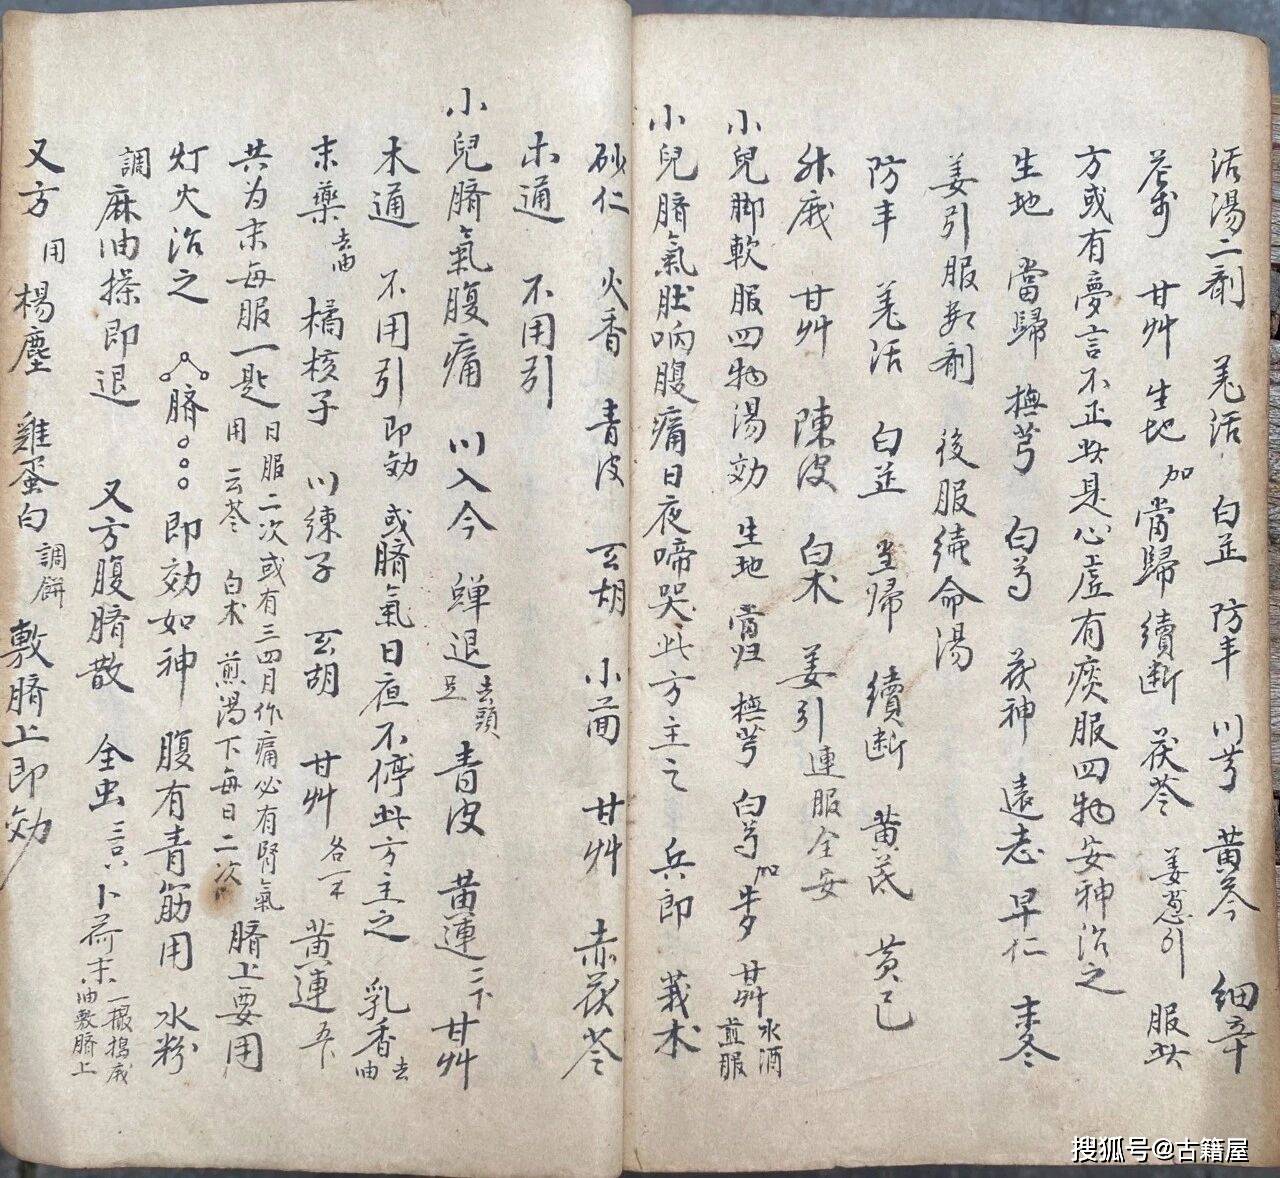 活湯二剤 羌活 白芷 防丰 川芎 黄芩 細辛
蒼朮 甘艸 生地 加當歸 續断 茯苓 姜葱引 服此
方或有夢言不正此是心虛有痰服四物安神治之
生地 當歸 撫芎 白芍 茯神 遠志 早仁 麦冬
姜引服数剤 後服續命湯
防丰 羌活 白芷 全归 續断 黄芪 黄己
甘艸 陳皮 白术 姜引連服全安
小兒脚軟服四物湯効 生地 當归 撫芎 白芍 加 甘艸 水酒煎服
小兒臍氣肚响腹痛日夜啼哭此方主之 兵郎 莪术
砂仁 火香 青皮 玄胡 小茴 甘艸 赤茯苓
木通 不用引
小兒臍氣腹痛 川入今 蟬退去頭足 青皮 黄連二卞 甘艸
木通 不用引即効 或臍氣日夜不停此方主之 乳香去油
末藥去油 橘核子 川練子 玄胡 甘艸各一 黄連五卞
共为末每服一匙日服二次或有三四月作痛必有腎氣用 云苓 白术 煎湯下每日二次 臍上要用
灯火治之 臍 即効如神 腹有青筋用 水粉
調麻油搽即退 又方腹臍散 全虫三只 卜荷末一撮搗成油敷臍上
又方 用楊塵 雞蛋白調餅 敷臍上即効
搜狐号@古籍屋